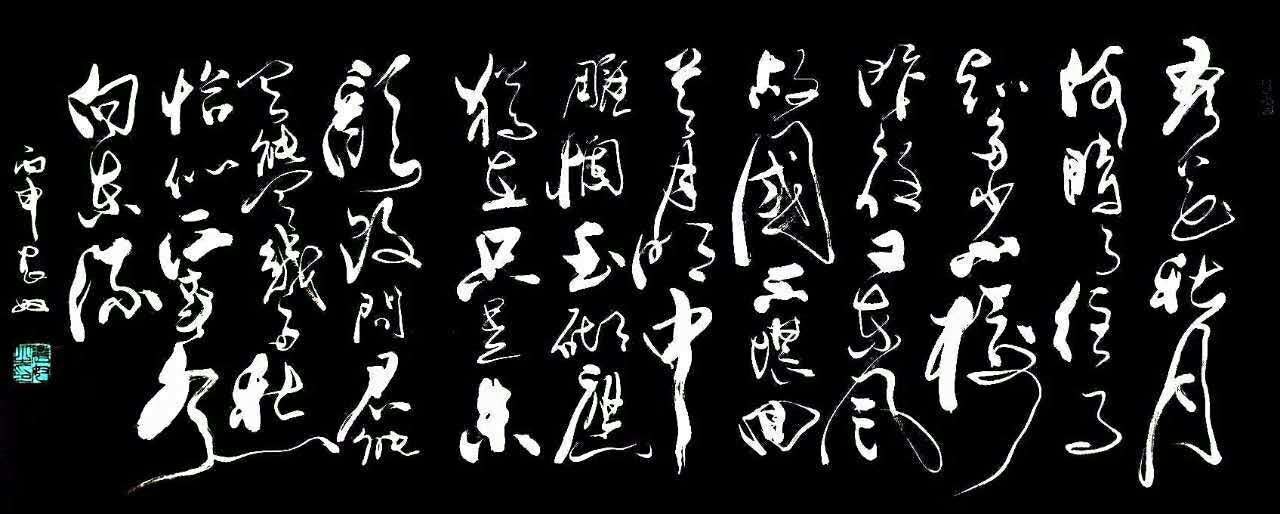 春花秋月
何時了往事
知多少小樓
昨夜又東風
故國不堪回
首月明中
雕闌玉砌應
猶在只是朱
顏改問君能
有能有幾多愁
恰似一江春水
向東流
丙申